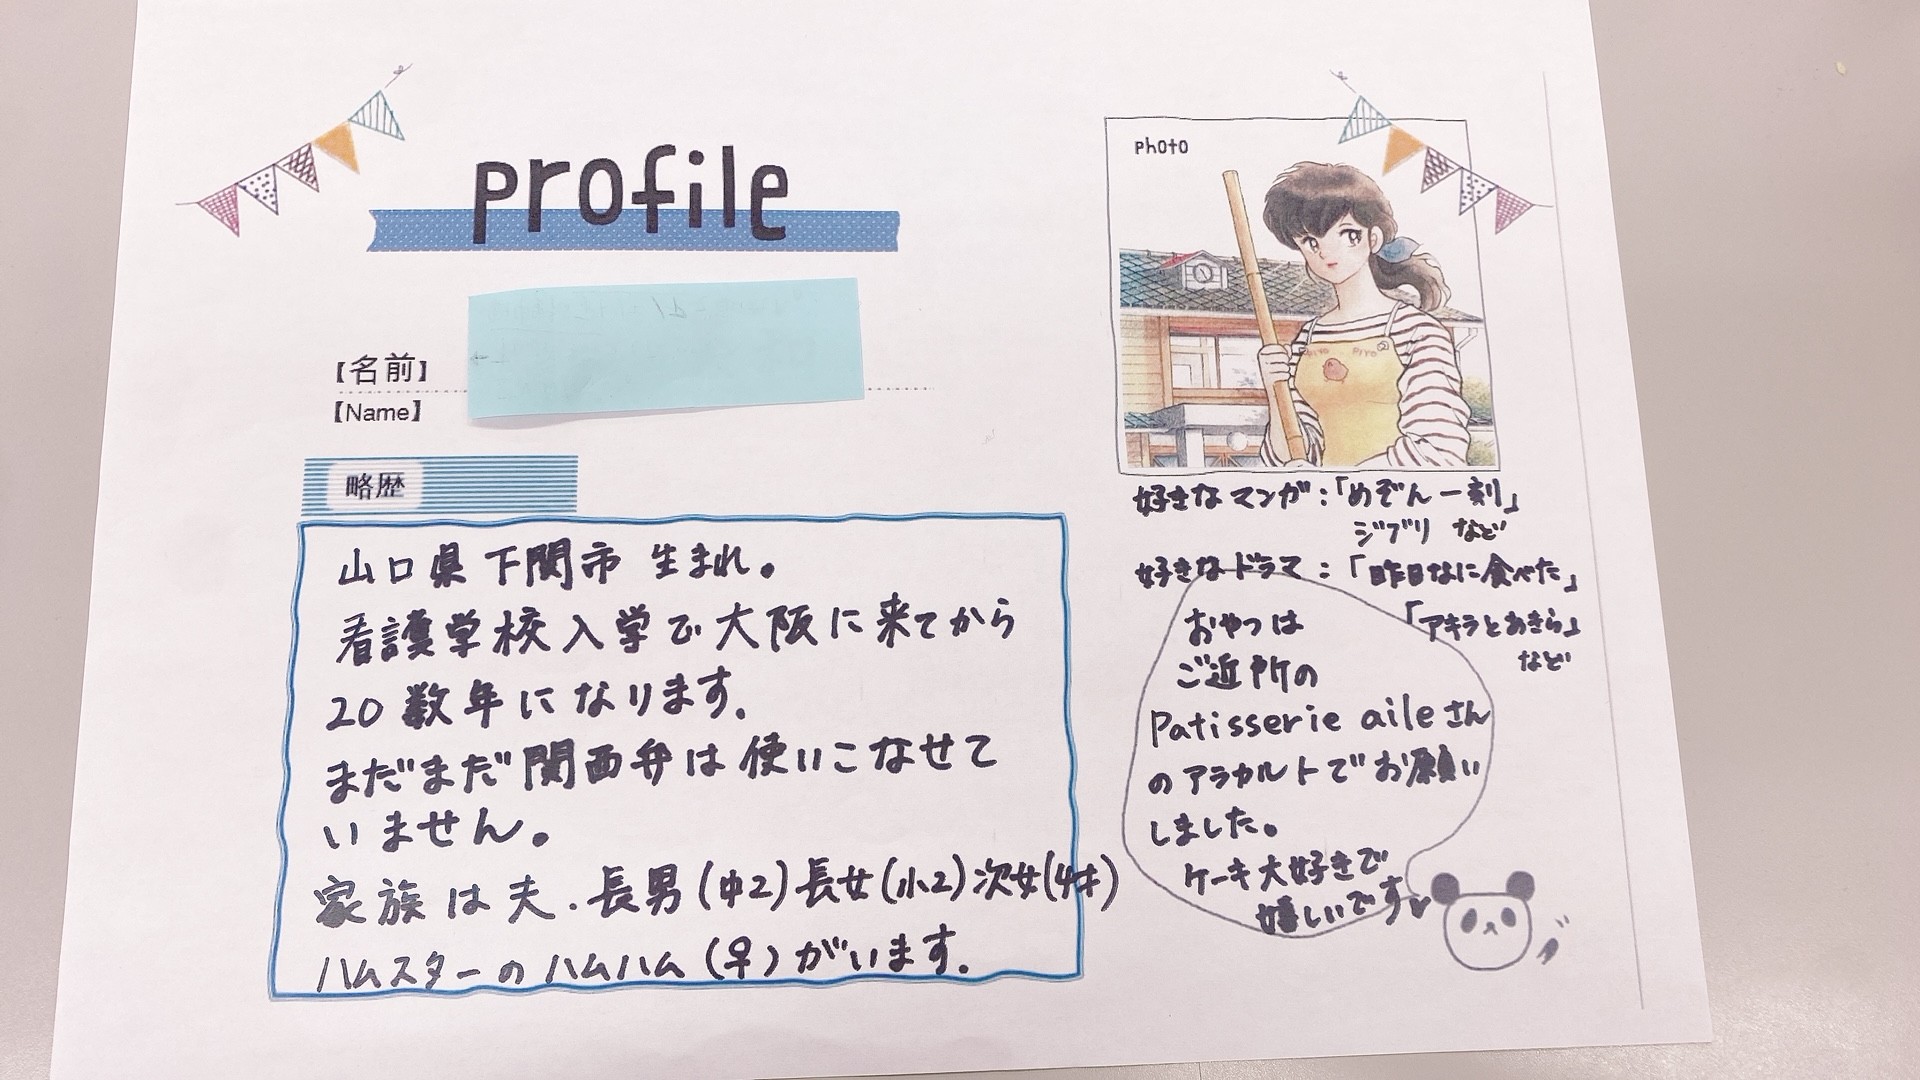 profile
【名前】
【Name】
略歴
山口県下関市 生まれ。
看護学校入学で大阪に来てから
20数年になります.
まだまだ関西弁は使いこなせて
いません。
家族は夫.長男(中2)長女(小2)次女(4才)
ハムスターのハムハム(♀)がいます.
photo
PIYO PIYO
好きなマンガ:「めぞん一刻」
ジブリ など
好きなドラマ:「昨日なに食べた」
「アキラとあきら」
など
おやつは
ご近所の
Patisserie aileさん
のアラカルトでお願い
しました。
ケーキ大好きで
嬉しいです♥